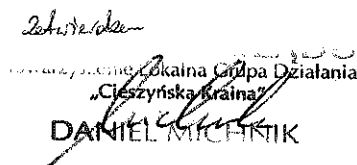 Zatwierdzam
Stowarzyszenie Lokalna Grupa Działania
„Cieszyńska Kraina"
DANIEL MICHNIK